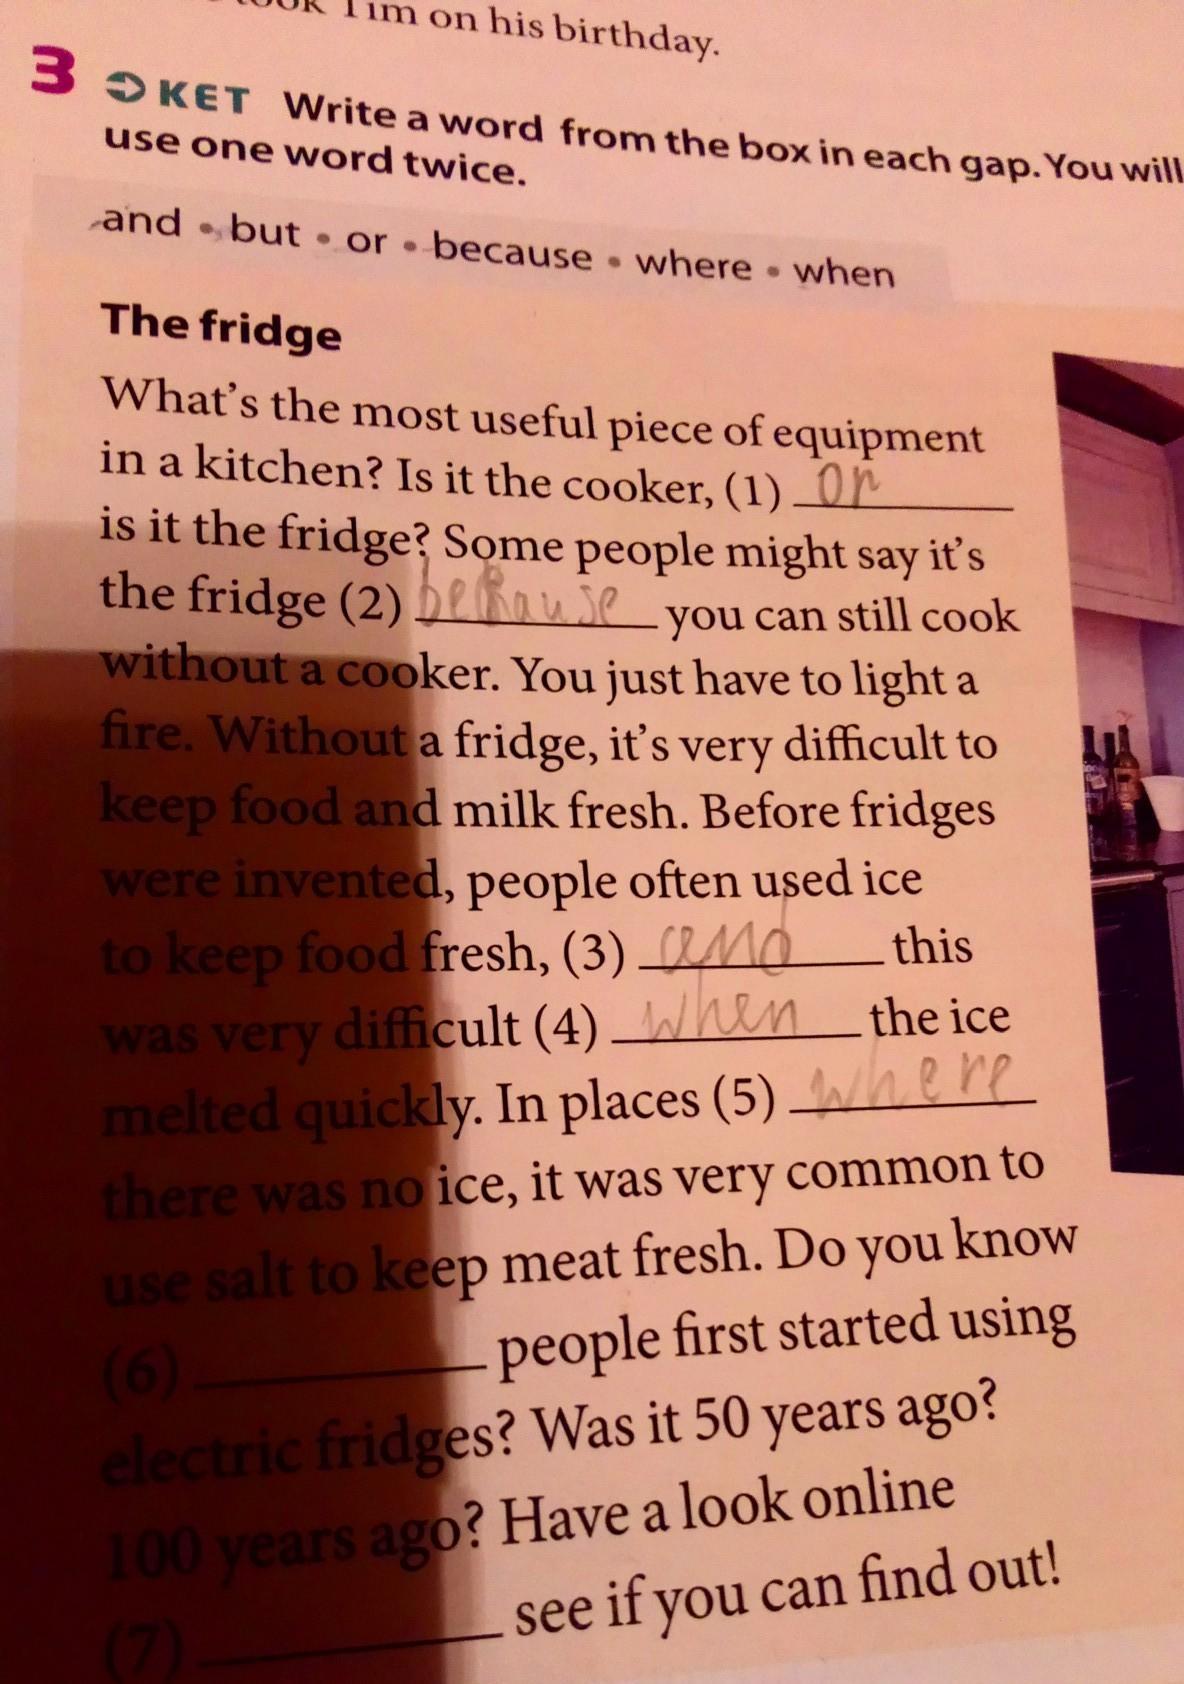 Tim on his birthday.
3 KET Write a word from the box in each gap. You will
use one word twice.
and • but • or • because • where • when
The fridge
What's the most useful piece of equipment
in a kitchen? Is it the cooker, (1) or
is it the fridge? Some people might say it's
the fridge (2) because you can still cook
without a cooker. You just have to light a
fire. Without a fridge, it's very difficult to
keep food and milk fresh. Before fridges
were invented, people often used ice
to keep food fresh, (3) and this
was very difficult (4) when the ice
melted quickly. In places (5) where
there was no ice, it was very common to
use salt to keep meat fresh. Do you know
(6) people first started using
electric fridges? Was it 50 years ago?
100 years ago? Have a look online
(7) see if you can find out!